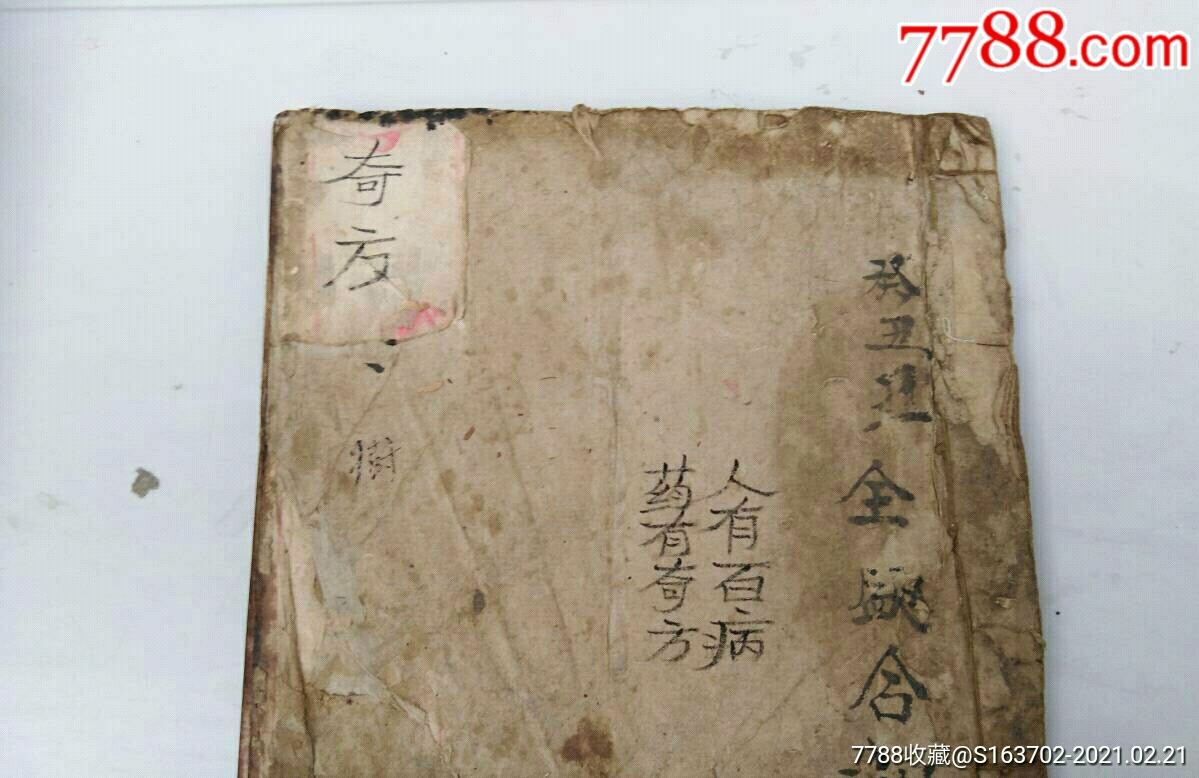 7788.com
癸丑
全
合
人有百病
药有奇方
奇方
7788收藏@S163702-2021.02.21